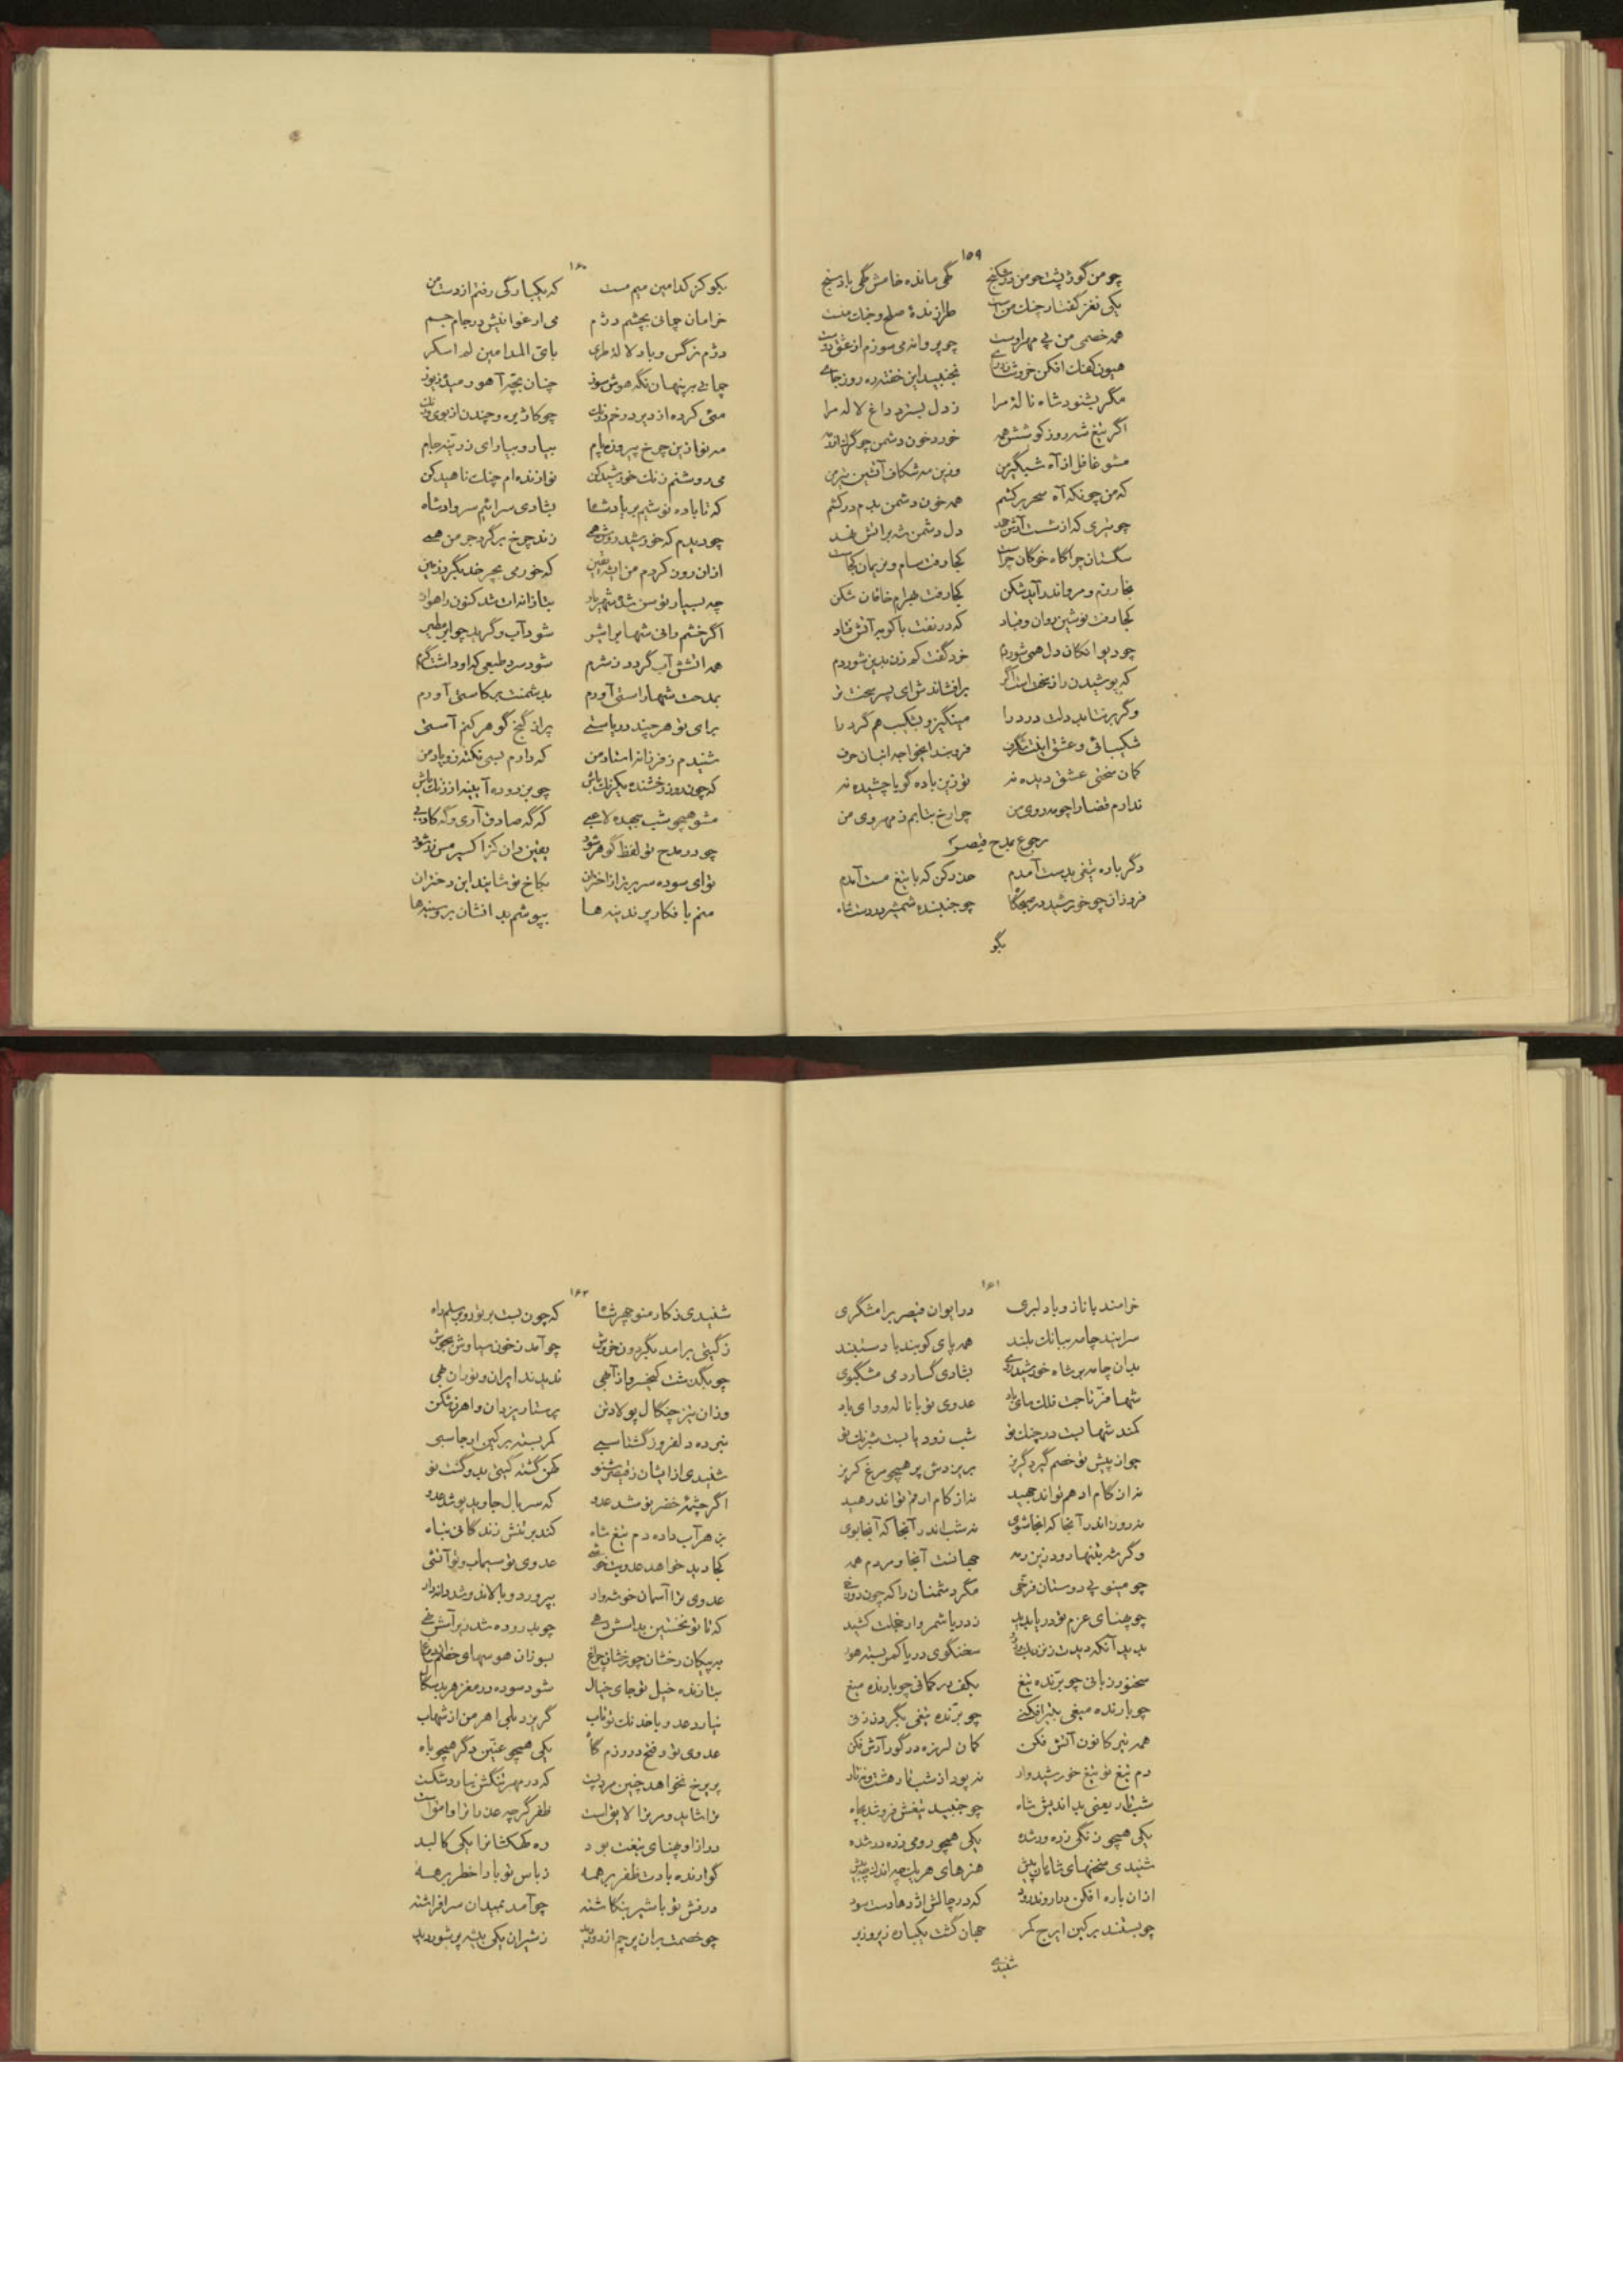 ۱۵۹
چو من گوژپشت چو من در شکنج گهی مانده خامش گهی باد سنج
یکی نغز گفتار چنگ من است طرازندهٔ صلح و جنگ منست
همه خصمی من پی مهر اوست چو پروانه می سوزم از عشق دوست
هیون کفک افکن خروشنده نجنبید این خفته ده روز جای
مگر بشنود شاه نالهٔ مرا ز دل بسترد داغ لاله مرا
اگر تیغ شه روز کوشش همه خورد خون دشمن چو گرگ از رمه
مشو غافل از آه شبگیر من وزین مه شکاف آتشین تیر من
که من چونکه آه سحر برکشم همه خون دشمن بدم درکشم
چو تیری که از شست آرش جهد دل دشمن شه بر آتش نهد
سگستان چراگاه خوکان چراست کجا رفت سام و نریمان کجاست
بخارا و مرو اندر آمد شکن کجا رفت بهرام خاقان شکن
کجا رفت نوشین روان و قباد که در نفت باکو بر آتش فتاد
چو دیوانگان دل همی شوردم خرد گفت کم زن بدین شور دم
که پوشیدن راز سخت است اگر برافشاندش ای پسر سخت تر
وگر برنتابد دلت درد را مینگیز و بشکیب هم گرد را
شکیبائی و عشق اینت شگرف فروبند ایخواجه انبان حرف
کمان سختی عشق دیده نه تو زین باده گویا چشیده نه
ندارم قضا را چو مه روی من چرا رخ بتابم ز مهروی من
رجوع بمدح قیصر
دگر باره تیغی بدست آمدم حذر کن که با تیغ مست آمدم
فروزان چو خورشید در صبحگاه چو جنبنده شمشیر در دست شاه
بگو
۱۶۰
بگو کز کدامین میم مست من که یکبارگی رفتم از دست من
خرامان چمانی بچشم دژم می ارغوانیش در جام جم
دژم نرگس و باد لاله طری بای المدامین لم اسکر
چمانی بر پنهان نگه هوش سوز چنان بچّه آهو رمیده ز یوز
مئی کرده از دیر در خم درنگ چو کاژیره و چندن از بوی و رنگ
مه نو ازین چرخ پیروزه فام بیار و بیارای زو تیره جام
می روشنم رنگ خورشید کن نوازنده ام چنگ ناهید کن
که تا باده نوشیم بر یاد شاه بشادی سرائیم سرواد شاه
چو دیدم که خورشید روشن همی زند چرخ بر گرد جرمن همی
ازان رون کردم من این یقین که خور می بچرخد نگردد زمین
چه بسیار توسن شد شهریار بتازانه ات شد کنون راهوار
اگر خشم رانی شها بر اثیر شود آب و گرید چو ابر مطیر
همه آتشش آب گردد ز شرم شود سرد طبعی که او داشت گرم
بمدحت شها راستی آورم بدشمنت بر کاستی آورم
برای تو هر چند دریاستی پر از گنج گوهر کنم آستی
شنیدم ز فرزانه استاد من که دارم بسی نکته زو یاد من
که چون روز رخشنده یکرنگ باش چو بزدوده آیینه از زنگ باش
مشو همچو شب بیهده لاغیی که گه صادق آری و گه کاذبی
چو در مدح تو لفظ گوهر شود یقین دان کز اکسیر مس زر شود
تو ای سوده سر برتر از اختران بکاخ تو شاید این دختران
منم با فکار پرند بندها بپوشم بد افشان بر و سینه ها
۱۶۱
خرامند با ناز و با دلبری در ایوان قیصر برامشگری
سرایند چامه ببانگ بلند همه پای کوبند با دستبند
بدان چامه بر شاه خورشید رای بشادی گسارد می مشگبوی
شها فرّ تاجت فلک سای باد عدوی تو با ناله و وای باد
کمند شها بست در چنگ تو شب زود پا بست شبرنگ تو
چو از پیش تو خصم گیرد گریز بریزدش پر همچو مرغ کریز
نه از گام ادهم تواند جهید نه از کام ارقم تواند رهید
نه روز اندر آنجا که اینجا شوی نه شب اندر آنجا که آنجا بوی
وگر شه بتنها رود زین رمه جهانست آنجا و مردم همه
چو مینو پی دوستان فرّخی مگر دشمنان را که چون دوزخی
چو پهنای عزم تو دریا بدید ز دریا شمر وار خجلت کشید
بدید آنکه دیدت سخنگوی دریا کمر بسته هور
سخنور زبانی چو برّنده تیغ بکف بر کمانی چو بارنده میغ
چو بارنده میغی بتیر افکنی چو برّنده تیغی بگردن زنی
همه تیر کانون آتش فکن کمان لرزه در گور آرش فکن
دم تیغ تو تیغ خورشید وار نه پود از شب تار هشت و نه تار
شب تار یعنی بد اندیش شاه چو جنبید تیغش فروشد بچاه
یکی همچو زنگی زده ور شده یکی همچو رومی زده در شده
شنیدی سخنهای شاهان پیش هنرهای هر یک چه اندازه بیش
ازان باره افکن که در چالش اژدها دست سود
چو بستند بر کین ایرج کمر جهان گشت یکباره زیر و زبر
شنیدی
۱۶۲
شنیدی ز کار منوچهر شاه که چون بست بر تور و بر سلم راه
ز گیتی برامد بگردون خروش چو آمد ز خون سیاوش بجوش
چو بگذشت کیخسرو از آگهی ندیدند ایران و توران بهی
وزان تیز چنگال پولاد تن پرستار یزدان و اهرمن شکن
نبرده دلفروز گشتاسبی کمر بسته بر کین ارجاسبی
شنیدی از ایشان ز قیصر شنو کهن گشته گیتی بدو گشت نو
اگر چشمه خضر نوشد عدو که سربال جاوید پوشد عدو
بزهر آب داده دم تیغ شاه کند بر تنش زندگانی تباه
کجا دید خواهد عدویت خوشی عدوی تو سیماب و تو آتشی
عدوی ترا آسمان خوشه وار بپرورد و بالاند و شد داندار
که تا تو نخستین بداسش دهی چو بدروده شد زیر آتش نهی
به پیکان رخشان چو رخشان چراغ بسوزان هوسهای خصم از دماغ
بتازنده خیل تو جای خیال شود سوده در مغز هر بدسگال
نیارد عدو با خدنگ تو تاب گریزد بلی اهرمن از شهاب
عدوی تو و فتح در رزمگاه یکی همچو عنّین دگر همچو باه
پریرخ نخواهد چنین مرد پست که در مهر تنگش نیارد شکست
ترا شاید و مر ترا لایق است ظفر گرچه عذرا ترا وامق است
درازا و پهنای تیغت بود ره کهکشانرا یکی کالبد
گوارنده بادت ظفر بر همه ز باس تو بادا خطر بر همه
درفش تو با شیر بنگاشته چو آمد بمیدان سر افراشته
چو خصمت بران پرچم از دور دید ز شیران یکی بیشه پر شور دید